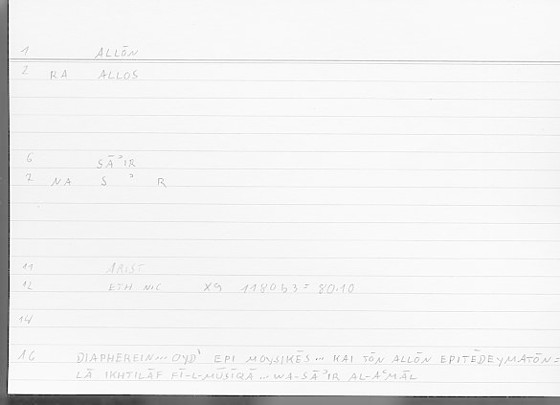 1 ALLŌN
2 RA ALLOS
6 SĀʾIR
7 NA S ʾ R
11 ARIST
12 ETH NIC X9 1180b3 = 80.10
14
16 DIAPHEREIN... OYDʾ EPI MOYSIKĒS ... KAI TŌN ALLŌN EPITĒDEYMATŌN =
LĀ IKHTILĀF FĪ-L-MŪSĪQĀ ... WA-SĀʾIR AL-AʿMĀL